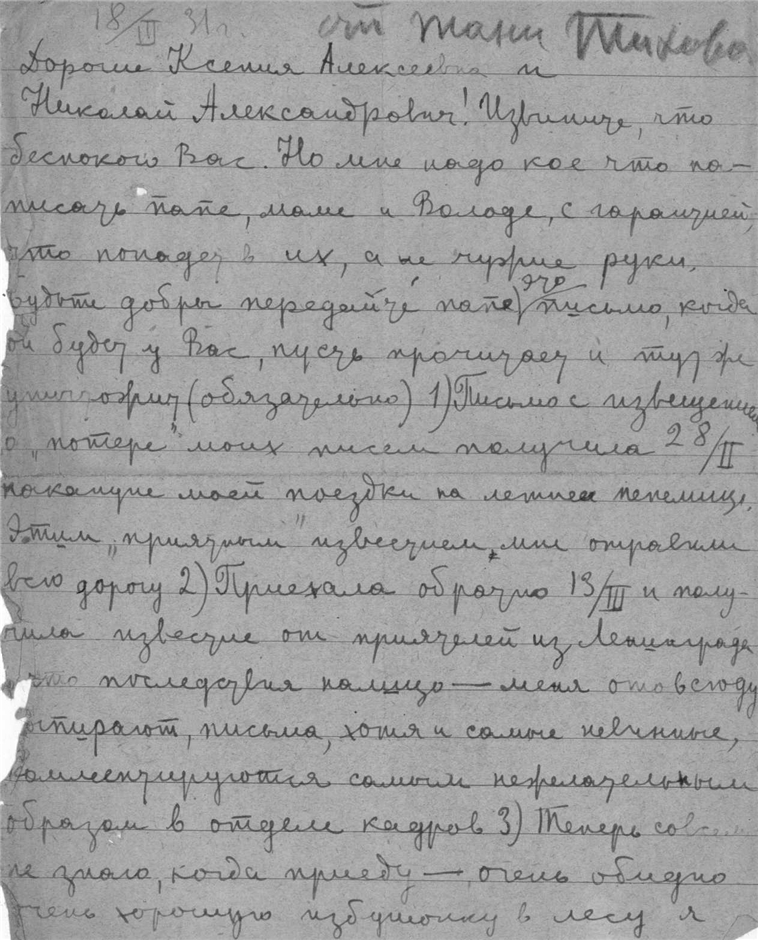 18/III 31 г.
от Тани Тихова
Дорогие Ксения Алексеевна и
Николай Александрович! Извините, что
беспокою Вас. Но мне надо кое что на-
писать папе, маме и Володе, с гарантией,
что попадет в их, а не чужие руки.
Будьте добры передайте папе это письмо, когда
он будет у Вас, пусть прочитает и тут же
уничтожит (обязательно) 1) Письмо с извещением
о „потере" моих писем получила 28/II
накануне моей поездки на летнее пепелище.
Этим „приятным" известием мне отравили
всю дорогу 2) Приехала обратно 13/III и полу-
чила известие от приятелей из Ленинграда
что последствия налицо — меня отовсюду
отпирают, письма, хотя и самые невинные,
комментируются самым нежелательным
образом в отделе кадров 3) Теперь совсем
не знаю, когда приеду — очень обидно
очень хорошую избушонку в лесу я